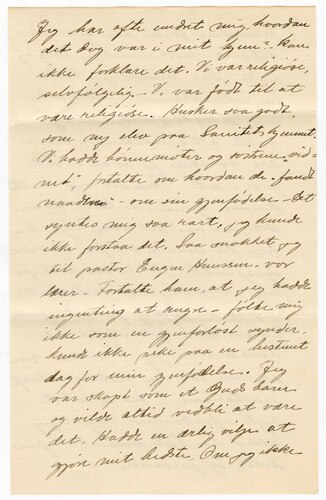 Jeg har ofte undret mig, hvordan
det dog var i mit hjem". Kan
ikke forklare det. Vi var religiøse,
selvfølgelig - Vi var født til at
være religiøse. Husker saa godt,
som ny elev paa Sanitets hjemmet.
Vi hadde bønnemøter og søstrene "vid-
net", fortalte om hvordan de "fandt
naaden" - om sin gjenfødelse - Det
syntes mig saa rart, jeg kunde
ikke forstaa det. Saa snakket jeg
til pastor Eugen Hansen - vor
lærer - Fortalte ham, at jeg hadde
ingenting at angre - følte mig
ikke som en gjenforløst synder,
kunde ikke peke paa en bestemt
dag for min gjenfødelse. Jeg
var skapt som et Guds barn
og vilde altid vedbli at være
det. Hadde en ærlig vilje at
gjøre mit bedste. Om jeg ikke